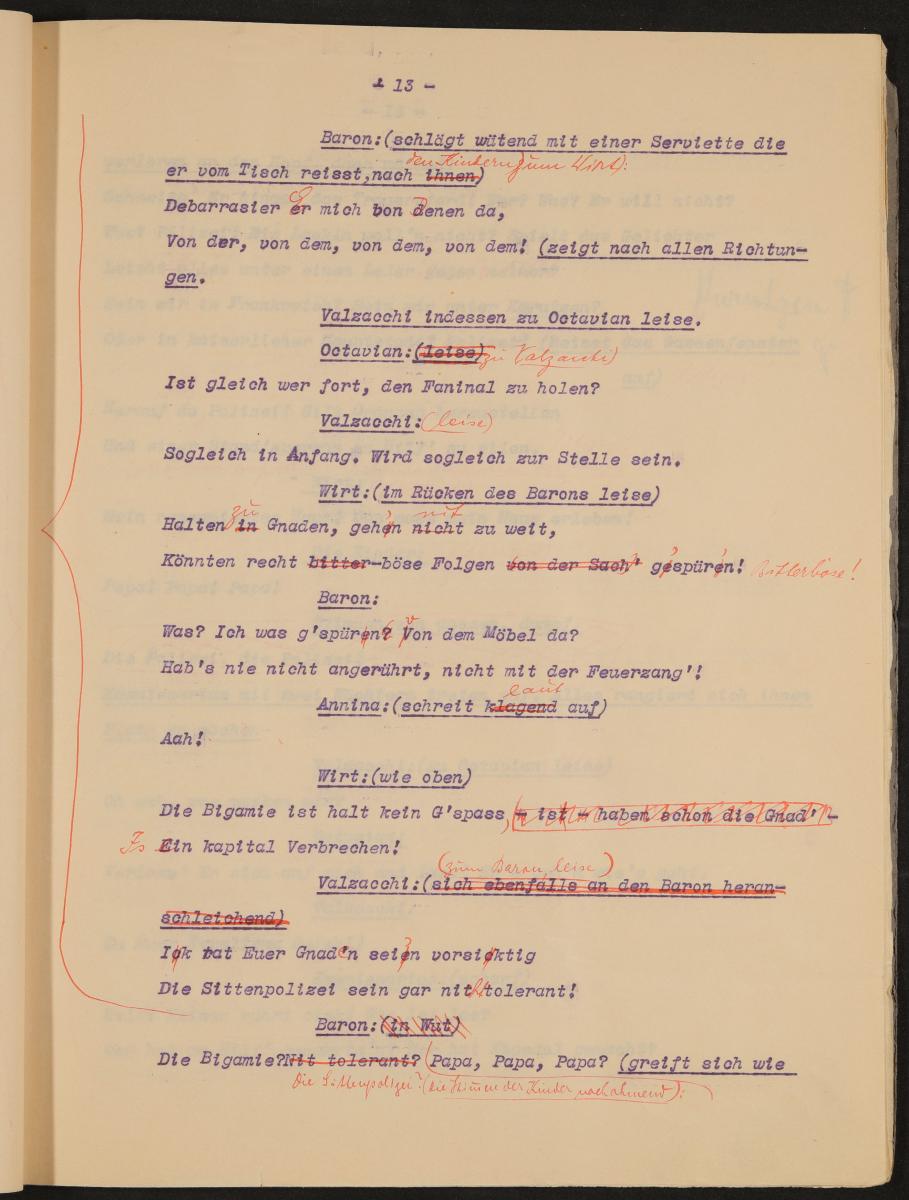 - 13 -
Baron:(schlägt wütend mit einer Serviette die
den Kindern) zum Wirt):
er vom Tisch reisst,nach ihnen)
Debarrasier er mich von denen da,
Von der, von dem, von dem, von dem! (zeigt nach allen Richtun-
gen.
Valzacchi indessen zu Octavian leise.
Octavian:(leise) zu Valzacchi)
Ist gleich wer fort, den Faninal zu holen?
Valzacchi: (leise)
Sogleich in Anfang. Wird sogleich zur Stelle sein.
Wirt:(im Rücken des Barons leise)
zu nit
Halten in Gnaden, gehen nicht zu weit,
Könnten recht bitter-böse Folgen von der Sach' gespüren! Bitterböse!
Baron:
Was? Ich was g'spüren? Von dem Möbel da?
Hab's nie nicht angerührt, nicht mit der Feuerzang'!
laut
Annina:(schreit klagend auf)
Aah!
Wirt:(wie oben)
Die Bigamie ist halt kein G'spass, - ist - haben schon die Gnad' -
Is Ein kapital Verbrechen!
(zum Baron, leise)
Valzacchi:(sich ebenfalls an den Baron heran-
schleichend)
Ick rat Euer Gnad'n seien vorsicktig
Die Sittenpolizei sein gar nit tolerant!
Baron:(in Wut)
Die Bigamie?Nit tolerant? Papa, Papa, Papa? (greift sich wie
Die Sittenpolizei? (die Stimmen der Kinder nachahmend):